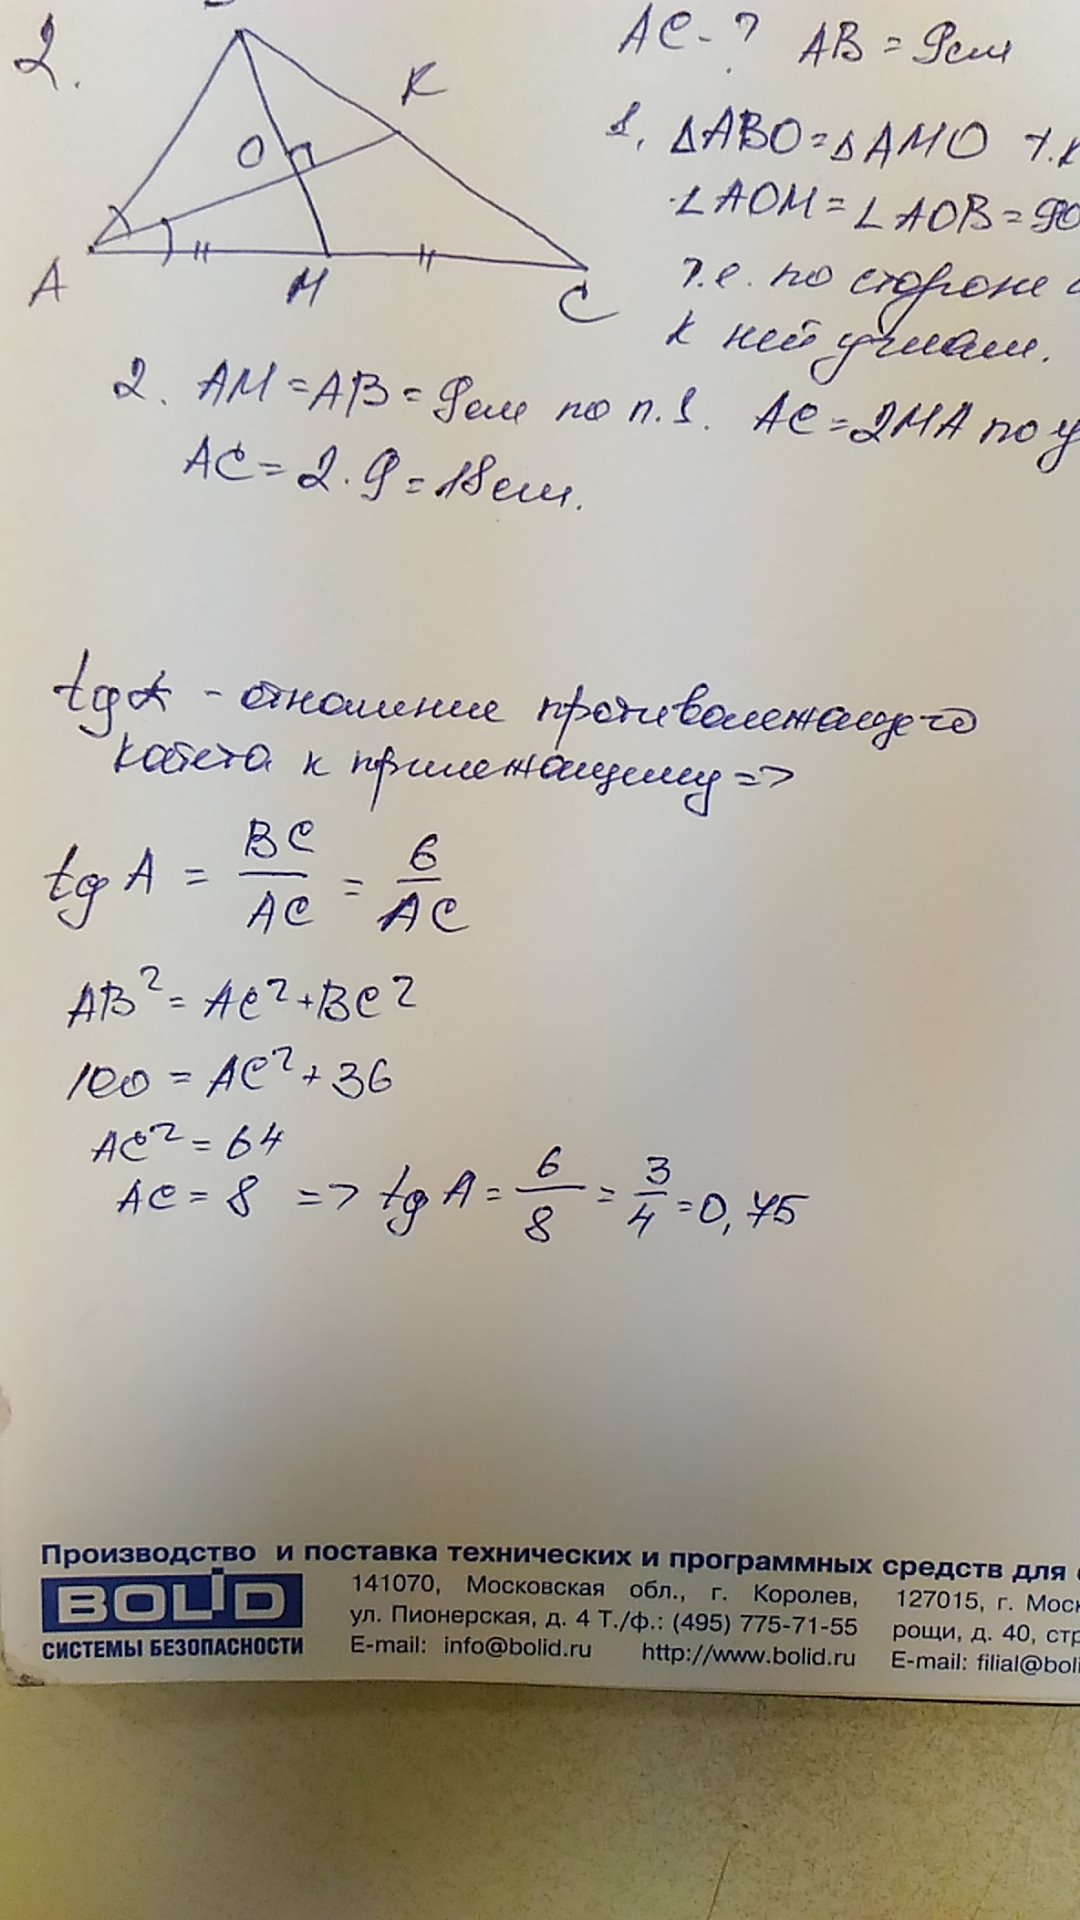 2.
K
O
A
M
C
AC - ? AB = 9см
1. △ABO = △AMO т.к
∠AOM = ∠AOB = 90
т.е. по стороне
к ней углам.
2. AM = AB = 9см по п.1. AC = 2MA по у
AC = 2·9 = 18см.
tg α - отношение противолежащего
катета к прилежащему =>
tg A = BC/AC = 6/AC
AB² = AC² + BC²
100 = AC² + 36
AC² = 64
AC = 8 => tg A = 6/8 = 3/4 = 0,75
Производство и поставка технических и программных средств для
BOLID
СИСТЕМЫ БЕЗОПАСНОСТИ
141070, Московская обл., г. Королев,
ул. Пионерская, д. 4 Т./ф.: (495) 775-71-55
E-mail: info@bolid.ru http://www.bolid.ru
127015, г. Моск
рощи, д. 40, стр
E-mail: filial@boli